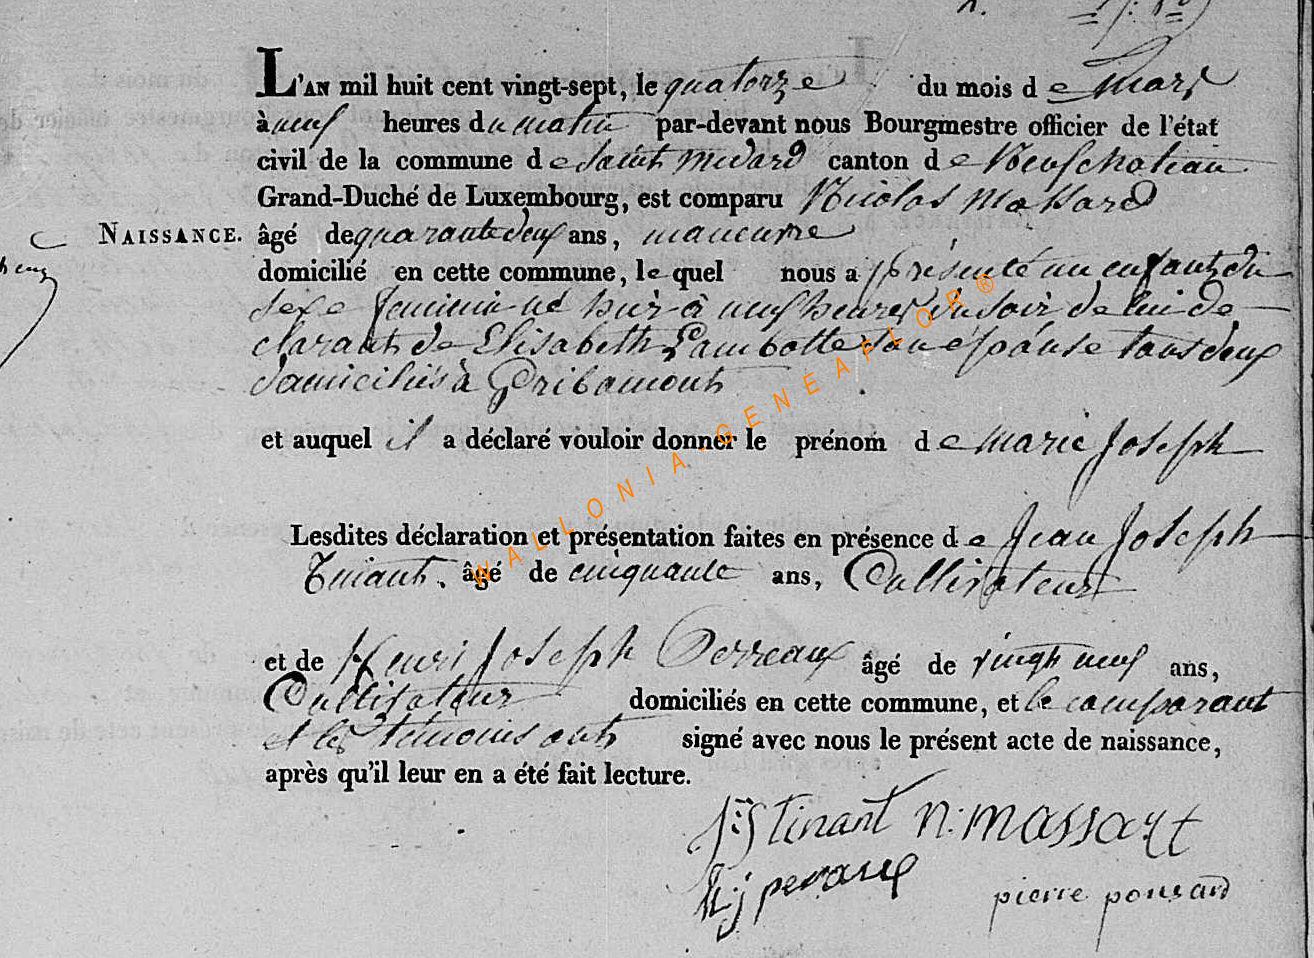 L'AN mil huit cent vingt-sept, le quatorze du mois de Mars
à neuf heures du matin par-devant nous Bourgmestre officier de l'état
civil de la commune de Saint Medard canton de Neufchateau
Grand-Duché de Luxembourg, est comparu Nicolas Massard
NAISSANCE. âgé de quarante deux ans, maneuvre
domicilié en cette commune, le quel nous a présenté un enfant du
sexe feminin né hier à neuf heures du soir de lui de
clarant de Elisabeth Lambotte son épouse tous deux
domiciliés à Gribomont
et auquel il a déclaré vouloir donner le prénom de Marie Joseph
Lesdites déclaration et présentation faites en présence de Jean Joseph
Tinant. âgé de cinquante ans, Cultivateur
et de Henri Joseph Perreaux âgé de vingt neuf ans,
Cultivateur domiciliés en cette commune, et le comparant
et les temoins ont signé avec nous le présent acte de naissance,
après qu'il leur en a été fait lecture.
WALLONIA-GENEAFLOR®
J:J Tinant n: massart
h:j peraux
pierre ponsard